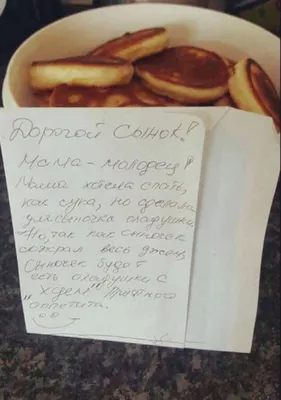 Дорогой сынок!
Мама - молодец!
Мама хотела спать,
как сука, но сделала
оладушки
Но, так как сыночек
сожрал весь джем,
Сыночек будет
есть оладушки с
"хуем" Приятного
аппетита.